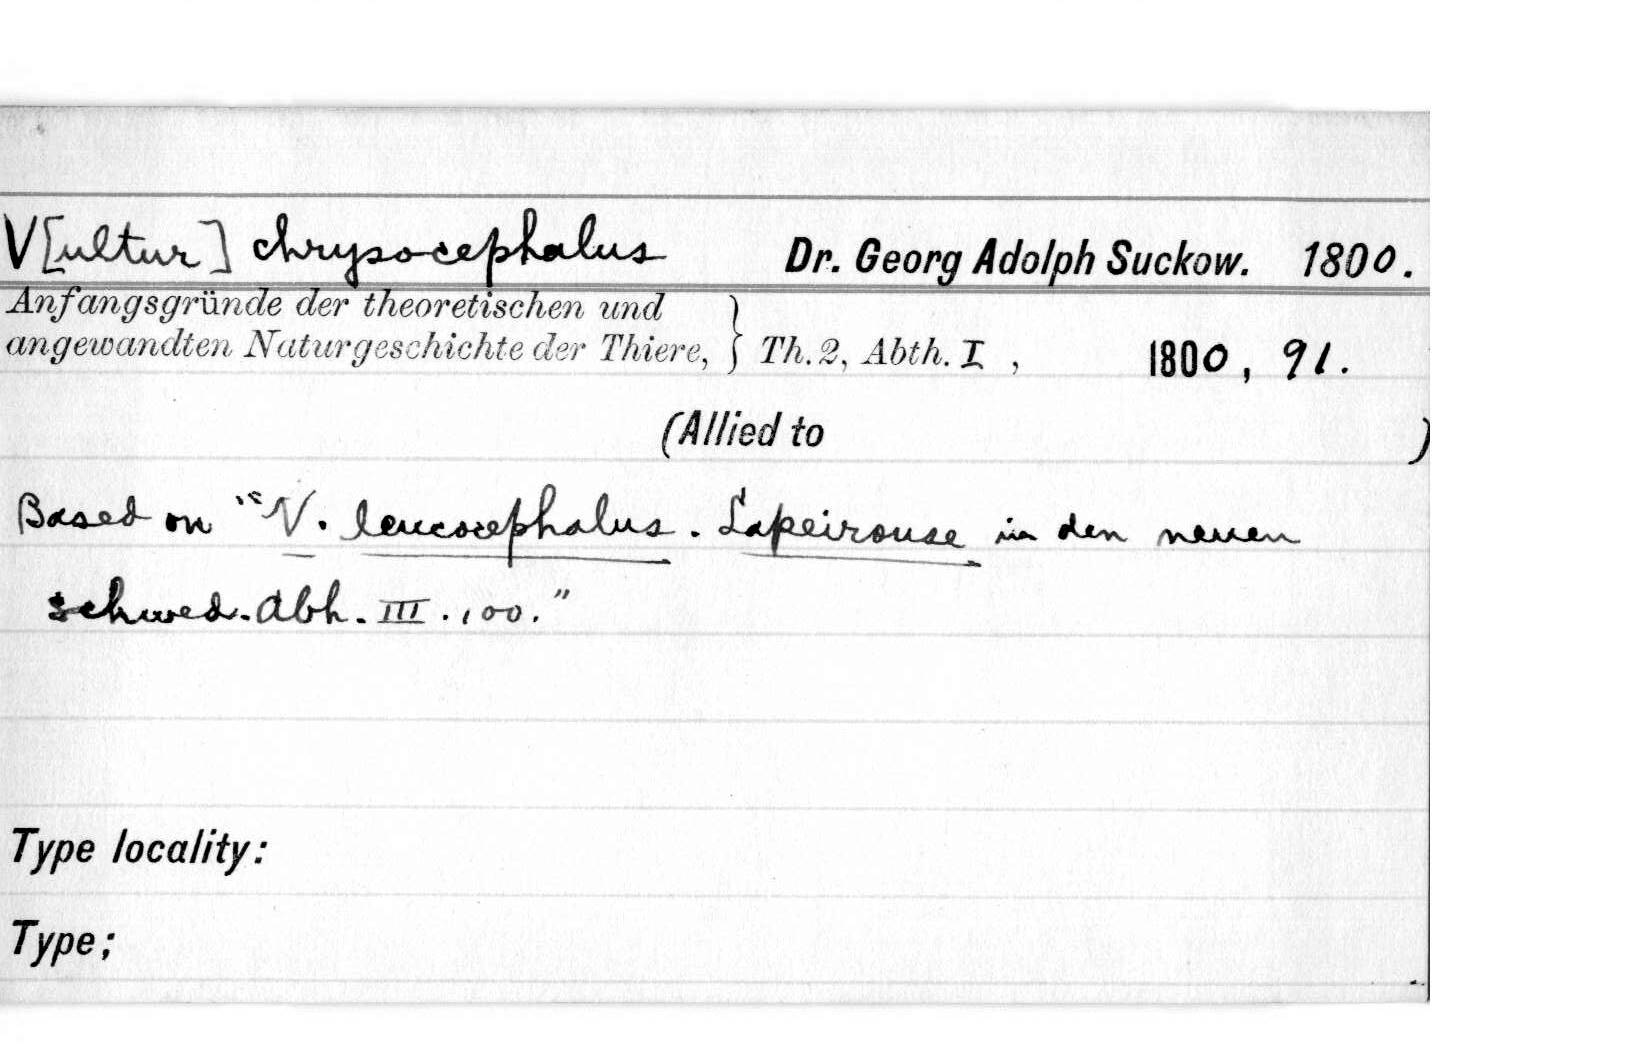 V[ultur] chrysocephalus Dr. Georg Adolph Suckow. 1800.
Anfangsgründe der theoretischen und
angewandten Naturgeschichte der Thiere, } Th. 2, Abth. I , 1800, 91.
(Allied to )
Based on "V. leucocephalus. Lapeirouse in den neuen
schwed. Abh. III. 100."
Type locality:
Type;